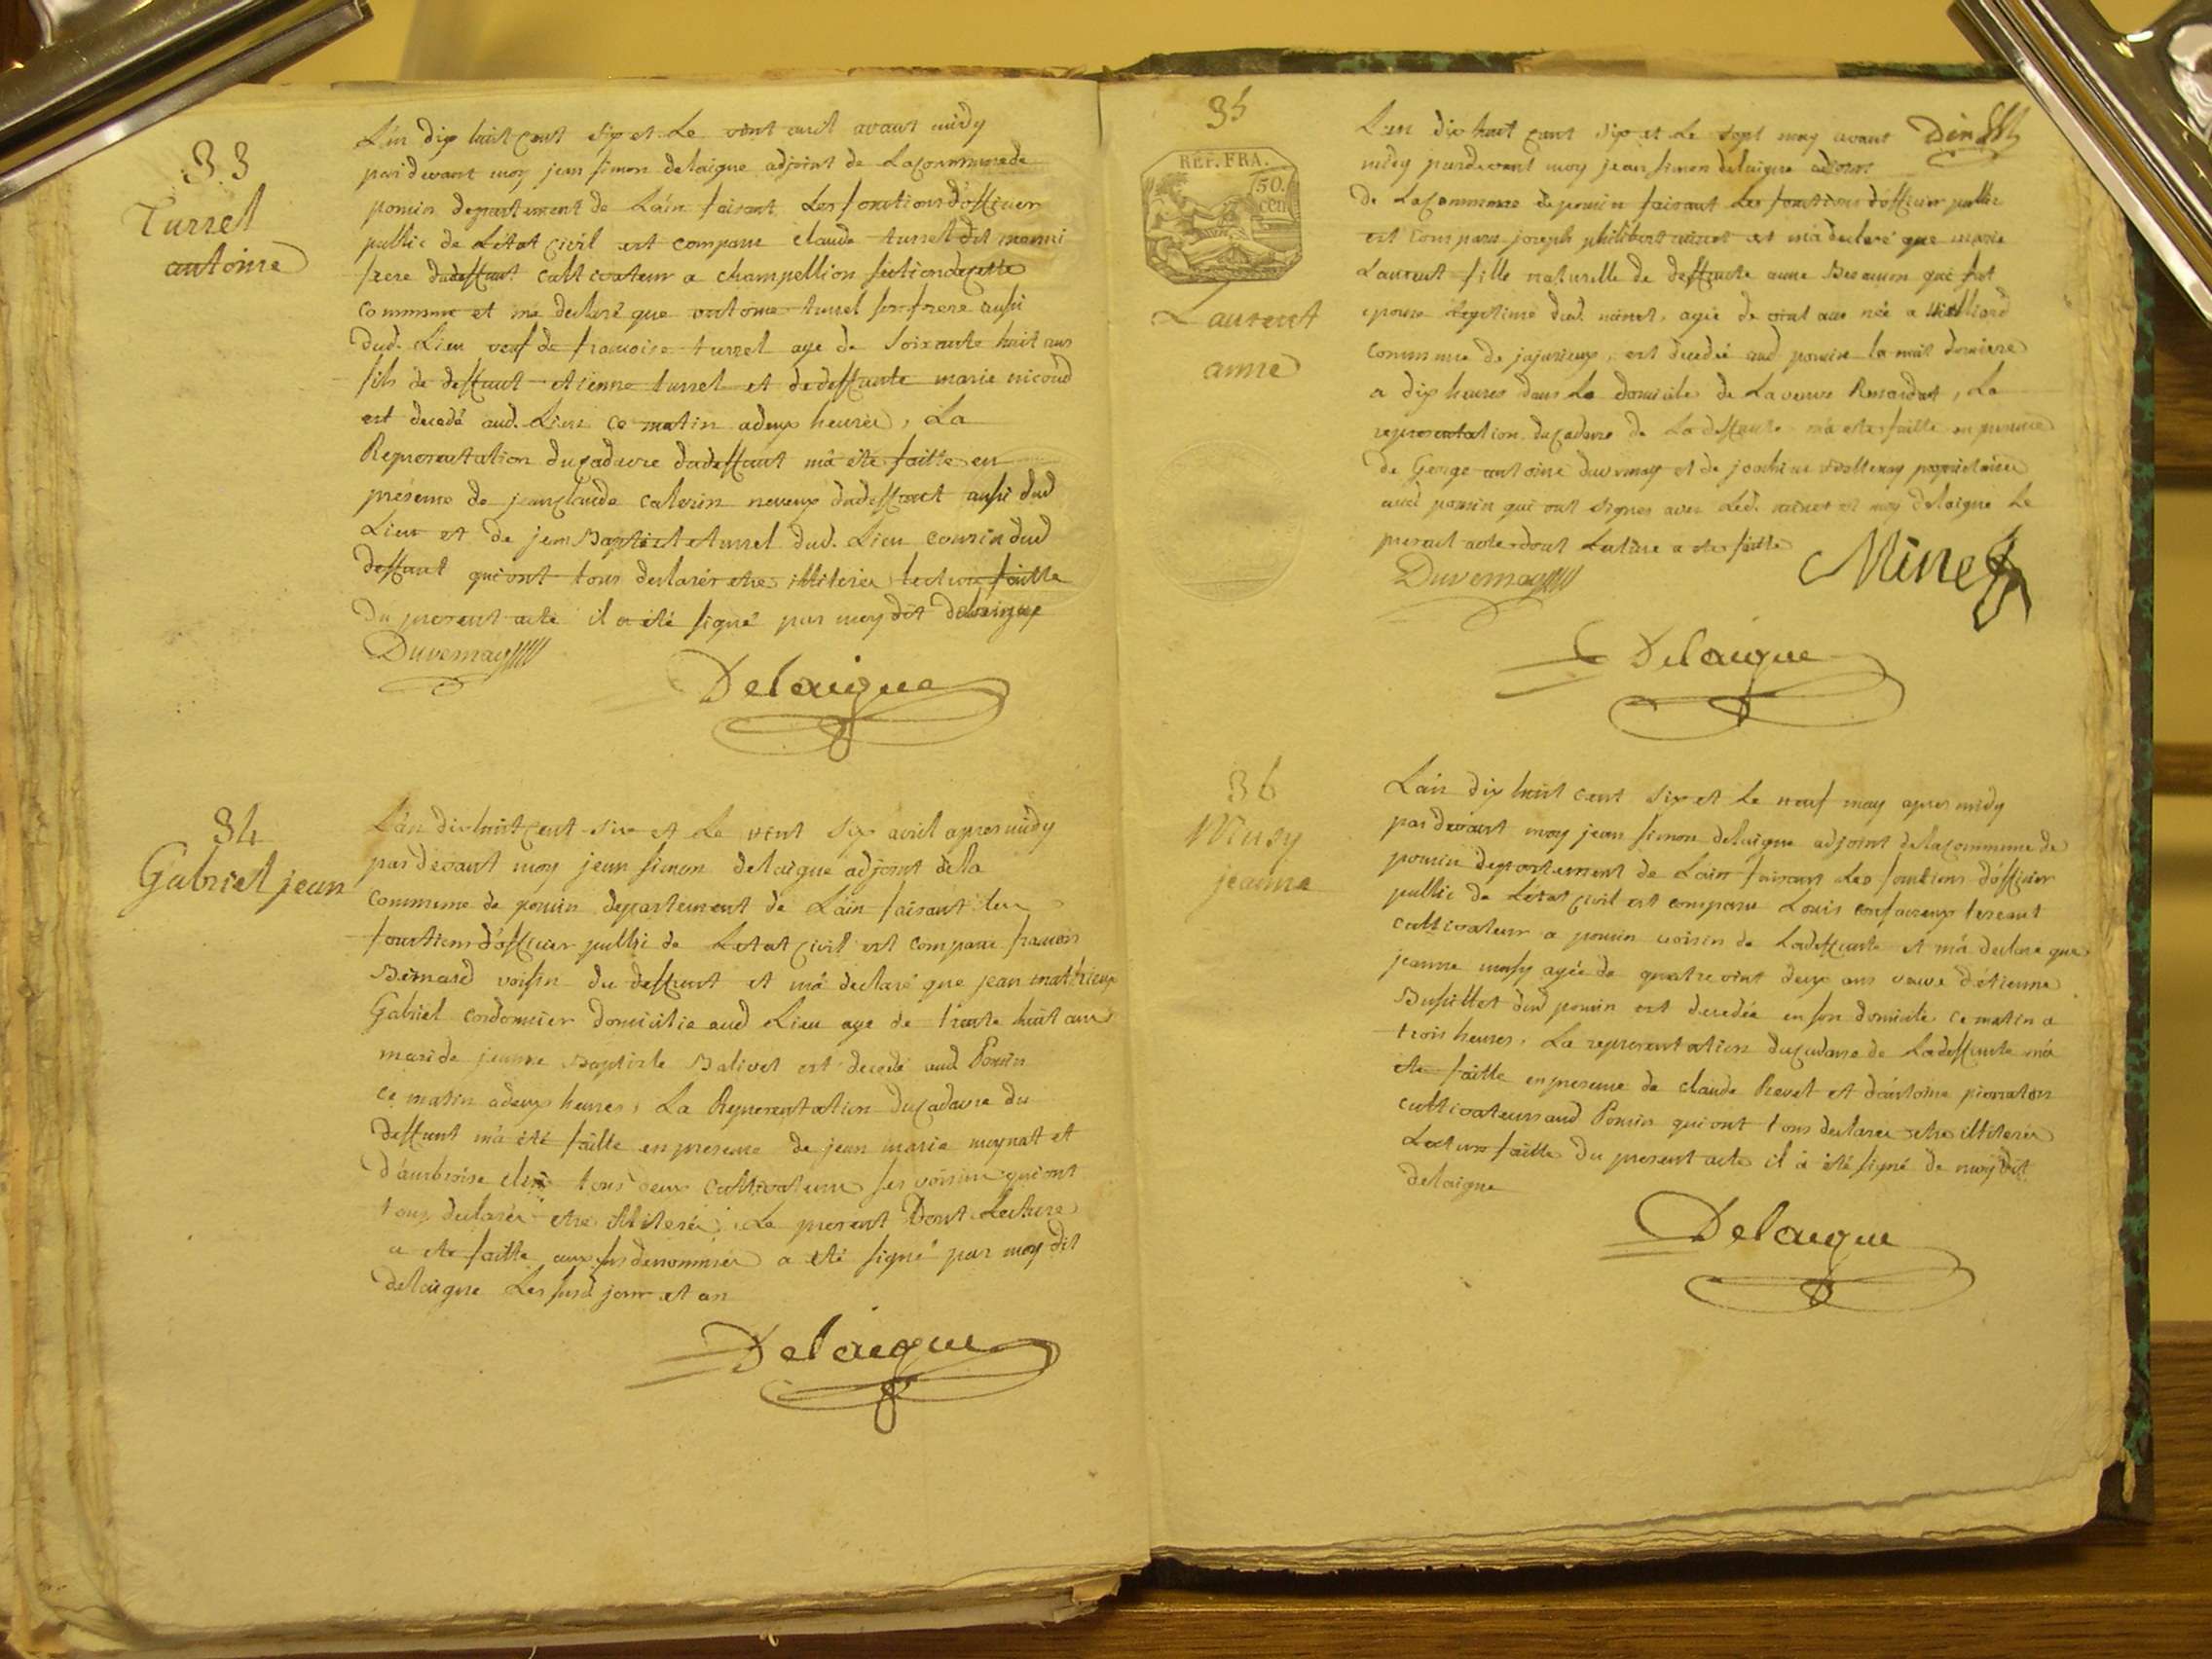 33
Turrel
antoine
L'an dix huit cent six et le vint avril avant midy
par devant moy jean simon delaigue adjoint de la commune de
poncin departement de L'ain faisant les fonctions d'officier
public de L'état civil est comparu claude turrel dit
frere dudeffunt cultivateur a champellion section de cette
commune et ma declaré que antoine turrel son frere aussi
dud. Lieu veuf de francoise turrel age de soixante huit ans
fils de deffunt etienne turrel et de deffunte marie nicoud
est decedé aud. Lieu ce matin a deux heures, La
Representation du cadavre dudeffunt m'a été faitte en
présence de jean claude neveux dudeffunt aussi dud
Lieu et de jean Baptiste turrel dud. Lieu cousin dud
deffunt qui ont tous declarés etre illiterés lecture faitte
du present acte il a été signé par moy dit delaigue
Duvernay
Delaigue
34
Gabriel jean
L'an dix huit cent six et le vint six avril apres midy
par devant moy jean simon delaigue adjoint de la
commune de poncin departement de L'ain faisant les
fonctions d'officier public de Letat civil est comparu francois
Bernard voisin du deffunt et m'a declaré que jean mathieux
Gabriel cordonnier domicilie aud Lieu age de trente huit ans
mari de jeanne Baptiste Balivet est decedé aud Poncin
ce matin a deux heures, La Representation du cadavre du
deffunt m'a été faitte en presence de jean marie muynat et
d'ambroise tous deux cultivateurs ses voisins qui ont
tous declarés etre illiterés, Le present Dont Lecture
a ete faitte aux susdenommés a été signé par moy dit
delaigue Les susd jour et an
Delaigue
35
REP. FRA.
50.
cen
Laurent
anne
L'an dix huit cent six et le sept may avant
midy pardevant moy jean simon delaigue adjoint
de La commune de poncin faisant les fonctions d'officier public
est comparu joseph philibert minet et m'a declaré que marie
Laurent fille naturelle de deffunte anne que fut
epouse legitime dud. minet, agée de vint ans née a
commune de jujurieux, est decedée aud poncin la nuit derniere
a dix heures dans le domicile de La veuve, La
representation du cadavre de La deffunte m'a ete faitte en presence
de George antoine duvernay et de joachim proprietaires
aud poncin qui ont signés avec led. minet et moy delaigue Le
present acte dont Lecture a ete faitte
Duvernay
Minet
Delaigue
36
Musy
jeanne
L'an dix huit cent six et le neuf may apres midy
par devant moy jean simon delaigue adjoint de la commune de
poncin departement de L'ain faisant les fonctions d'officier
public de L'état civil est comparu Louis
cultivateur a poncin voisin de La deffunte et m'a declaré que
jeanne musy agée de quatre vint deux ans veuve d'étienne
Busillet dud poncin est decedée en son domicile ce matin a
trois heures, La representation du cadavre de La deffunte m'a
ete faitte en presence de claude Revel et d'antoine
cultivateurs aud Poncin qui ont tous declarés etre illiterés
Lecture faitte du present acte il a été signé de moy dit
delaigue
Delaigue